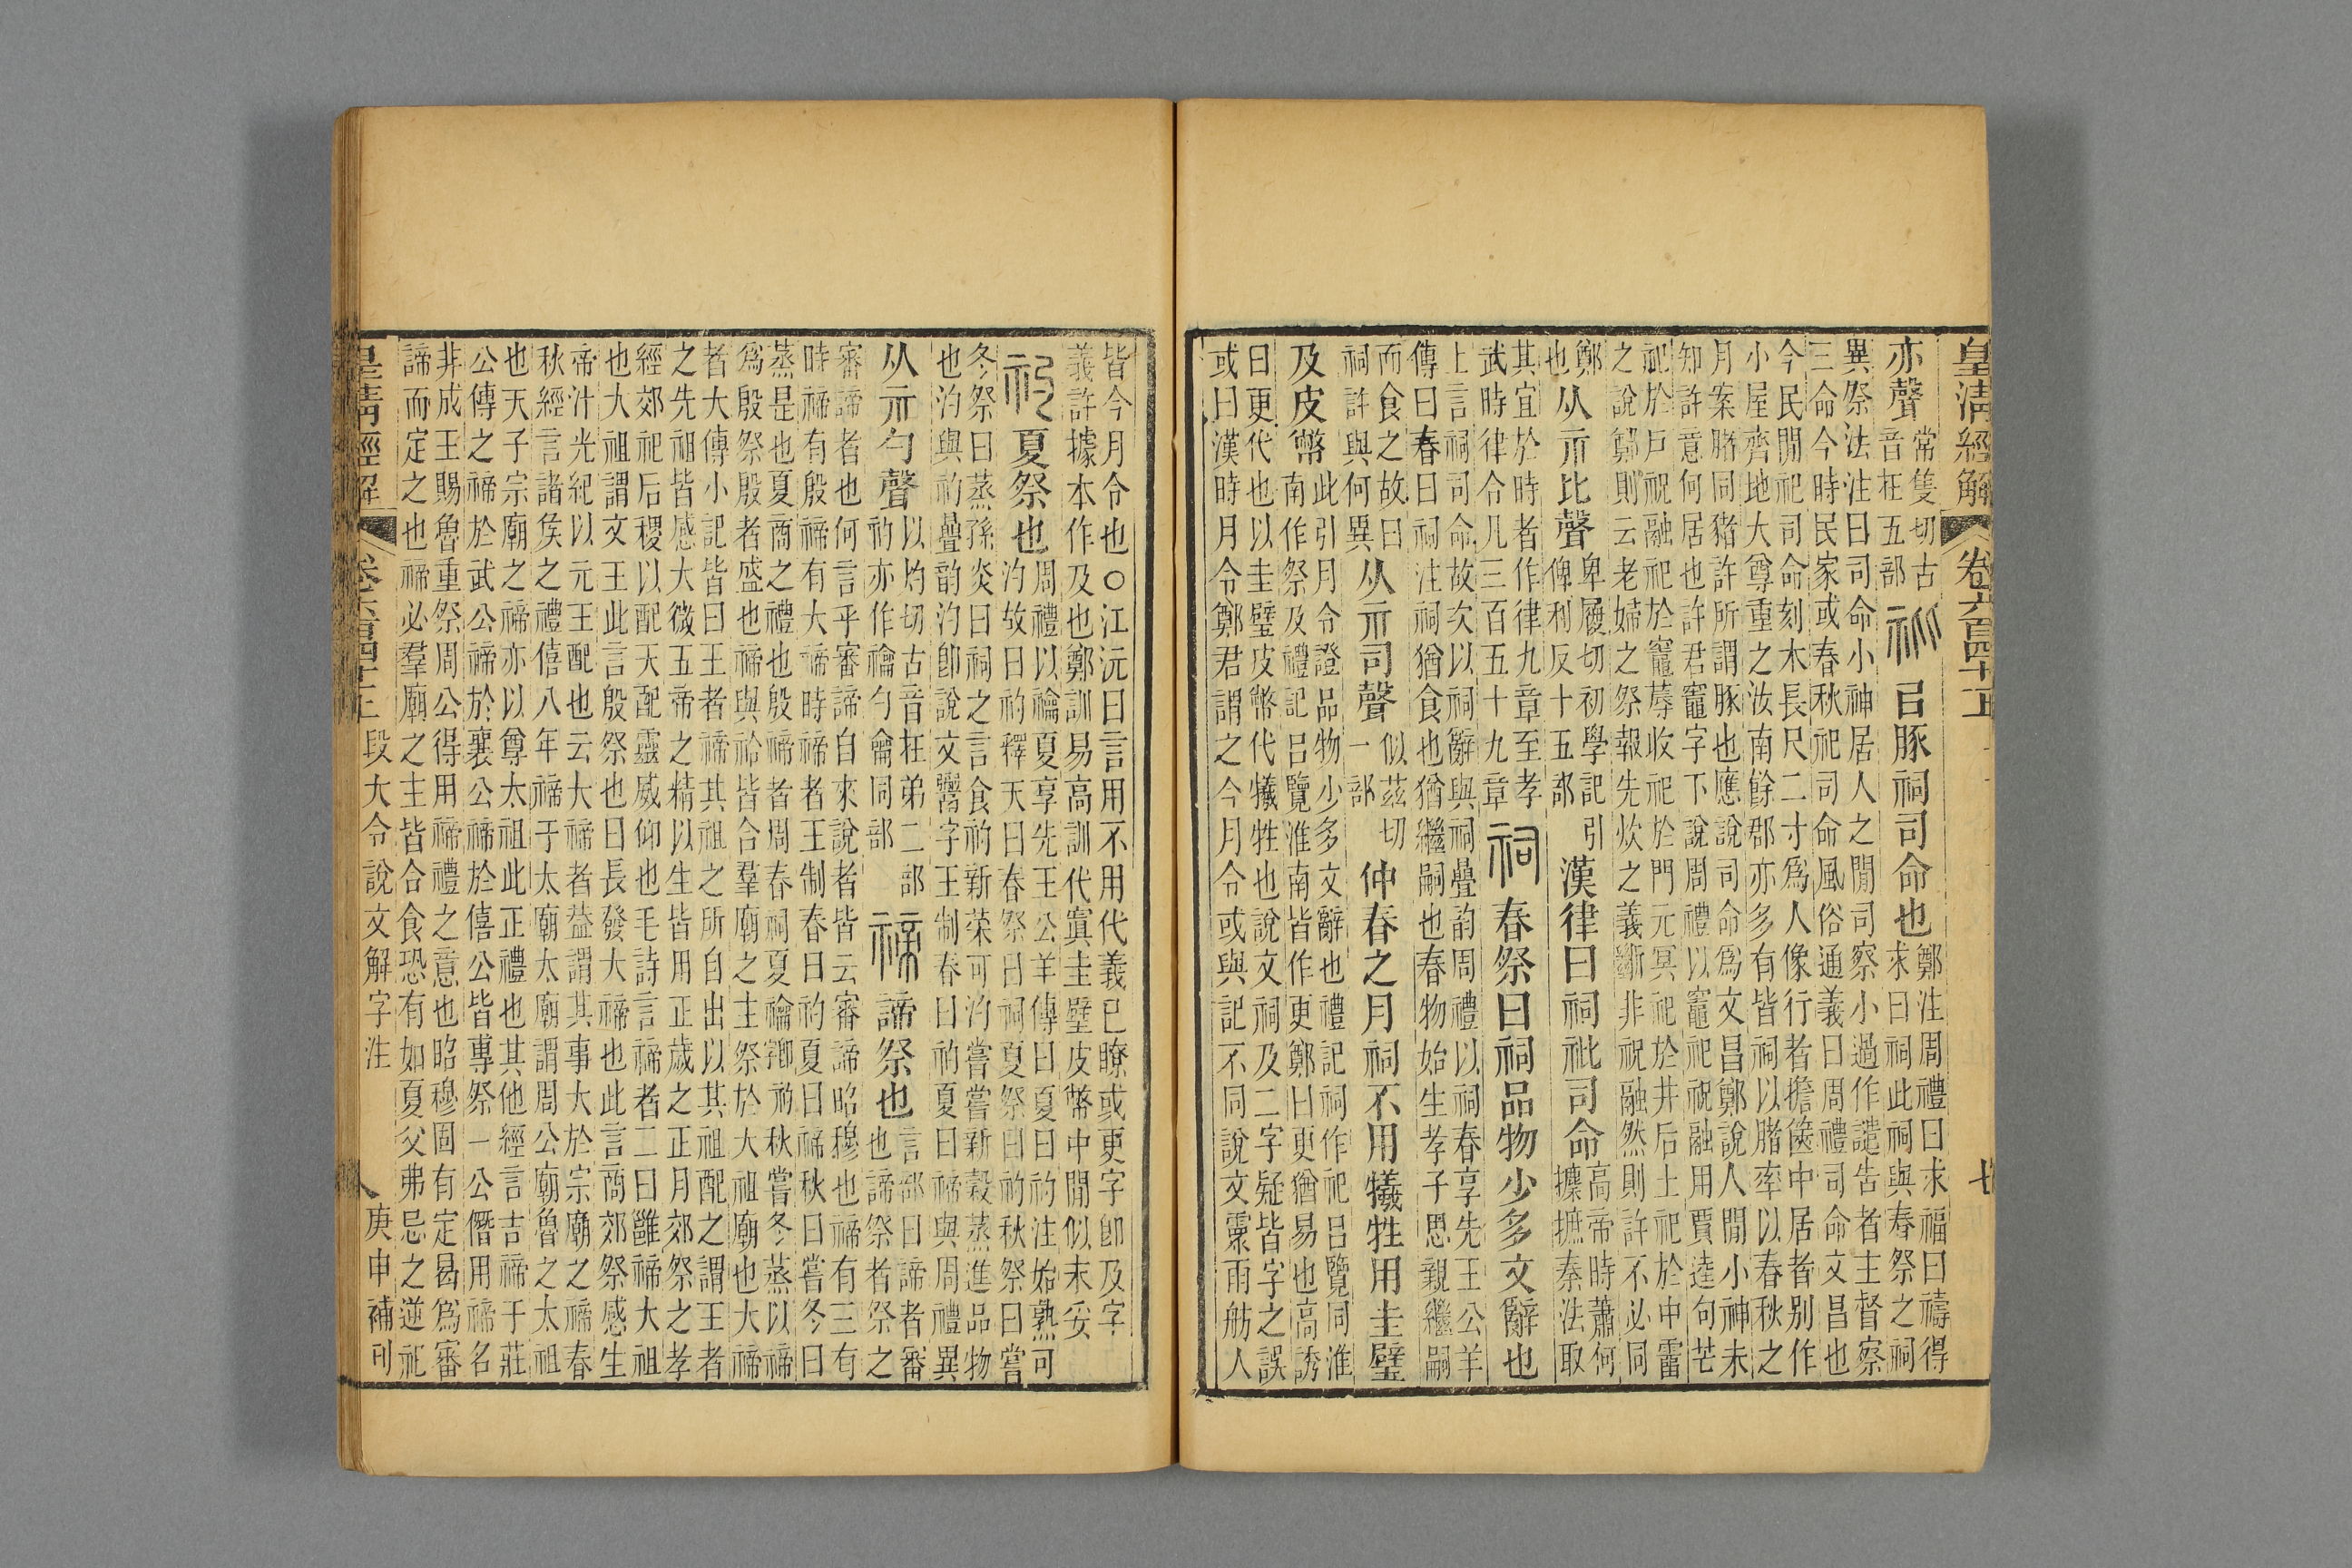 皇清經解 卷六百四十五 七
亦聲 常隻切古音在五部 䃾 㠯豚祠司命也 鄭注周禮曰求福曰禱得求曰祠此祠與春祭之祠
異祭法注曰司命小神居人之閒司察小過作譴告者主督察
三命今時民家或春秋祀司命風俗通義曰周禮司命文昌也
今民閒祀司命刻木長尺二寸爲人像行者擔篋中居者別作
小屋齊地大尊重之汝南餘郡亦多有皆祠以䐗率以春秋之
月案䐗同豬許所謂豚也應說司命爲文昌鄭說人閒小神未
知許意何居也許君竈字下說周禮以竈祀祝融用賈逵句芒
祀於戶祝融祀於竈蓐收祀於門元冥祀於井后土祀於中霤
之說鄭則云老婦之祭報先炊之義斷非祝融然則許不必同
鄭也 从示比聲 卑履切初學記引俾利反十五部 漢律曰祠䃾司命 高帝時蕭何攗摭秦法取
其宜於時者作律九章至孝武時律令凡三百五十九章 祠 春祭曰祠品物少多文辭也
上言祠司命故次以祠辭與祠曡韵周禮以祠春享先王公羊
傳曰春曰祠注祠猶食也猶繼嗣也春物始生孝子思親繼嗣
而食之故曰祠許與何異 从示司聲 似茲切一部 仲春之月祠不用犧牲用圭璧
及皮幣 此引月令證品物少多文辭也禮記祠作祀呂覽同淮南作祭及禮記呂覽淮南皆作更鄭曰更猶易也高誘
曰更代也以圭璧皮幣代犧牲也說文祠及二字疑皆字之誤
或曰漢時月令鄭君謂之今月令或與記不同說文霥雨舫人
皆今月令也○江沅曰言用不用代義已瞭或更字卽及字
義許據本作及也鄭訓易高訓代寘圭璧皮幣中閒似未妥
礿 夏祭也 周禮以禴夏享先王公羊傳曰夏曰礿注始熟可汋故曰礿釋天曰春祭曰祠夏祭曰礿秋祭曰嘗
冬祭曰蒸孫炎曰祠之言食礿新菜可汋嘗嘗新榖蒸進品物
也汋與礿曡韵汋卽說文䰞字王制春曰礿夏曰禘與周禮異
从示勺聲 以灼切古音在弟二部礿亦作禴勺龠同部 禘 諦祭也 言部曰諦者審也諦祭者祭之
審諦者也何言乎審諦自來說者皆云審諦昭穆也禘有三有
時禘有殷禘有大禘時禘者王制春曰礿夏曰禘秋曰嘗冬曰
蒸是也夏商之禮也殷禘者周春祠夏禴卽礿秋嘗冬蒸以禘
爲殷祭殷者盛也禘與祫皆合羣廟之主祭於大祖廟也大禘
者大傳小記皆曰王者禘其祖之所自出以其祖配之謂王者
之先祖皆感大微五帝之精以生皆用正歲之正月郊祭之孝
經郊祀后稷以配天配靈威仰也毛詩言禘者二曰雝禘大祖
也大祖謂文王此言殷祭也曰長發大禘也此言商郊祭感生
帝汁光紀以元王配也云大禘者葢謂其事大於宗廟之禘春
秋經言諸矦之禮僖八年禘于太廟太廟謂周公廟魯之太祖
也天子宗廟之禘亦以尊太祖此正禮也其他經言吉禘于莊
公傳之禘於武公禘於襄公禘於僖公皆專祭一公僭用禘名
非成王賜魯重祭周公得用禘禮之意也昭穆固有定曷爲審
諦而定之也禘必羣廟之主皆合食恐有如夏父弗忌之逆祀
皇清經解 卷六百四十五 段大令說文解字注 八 庚申補刊